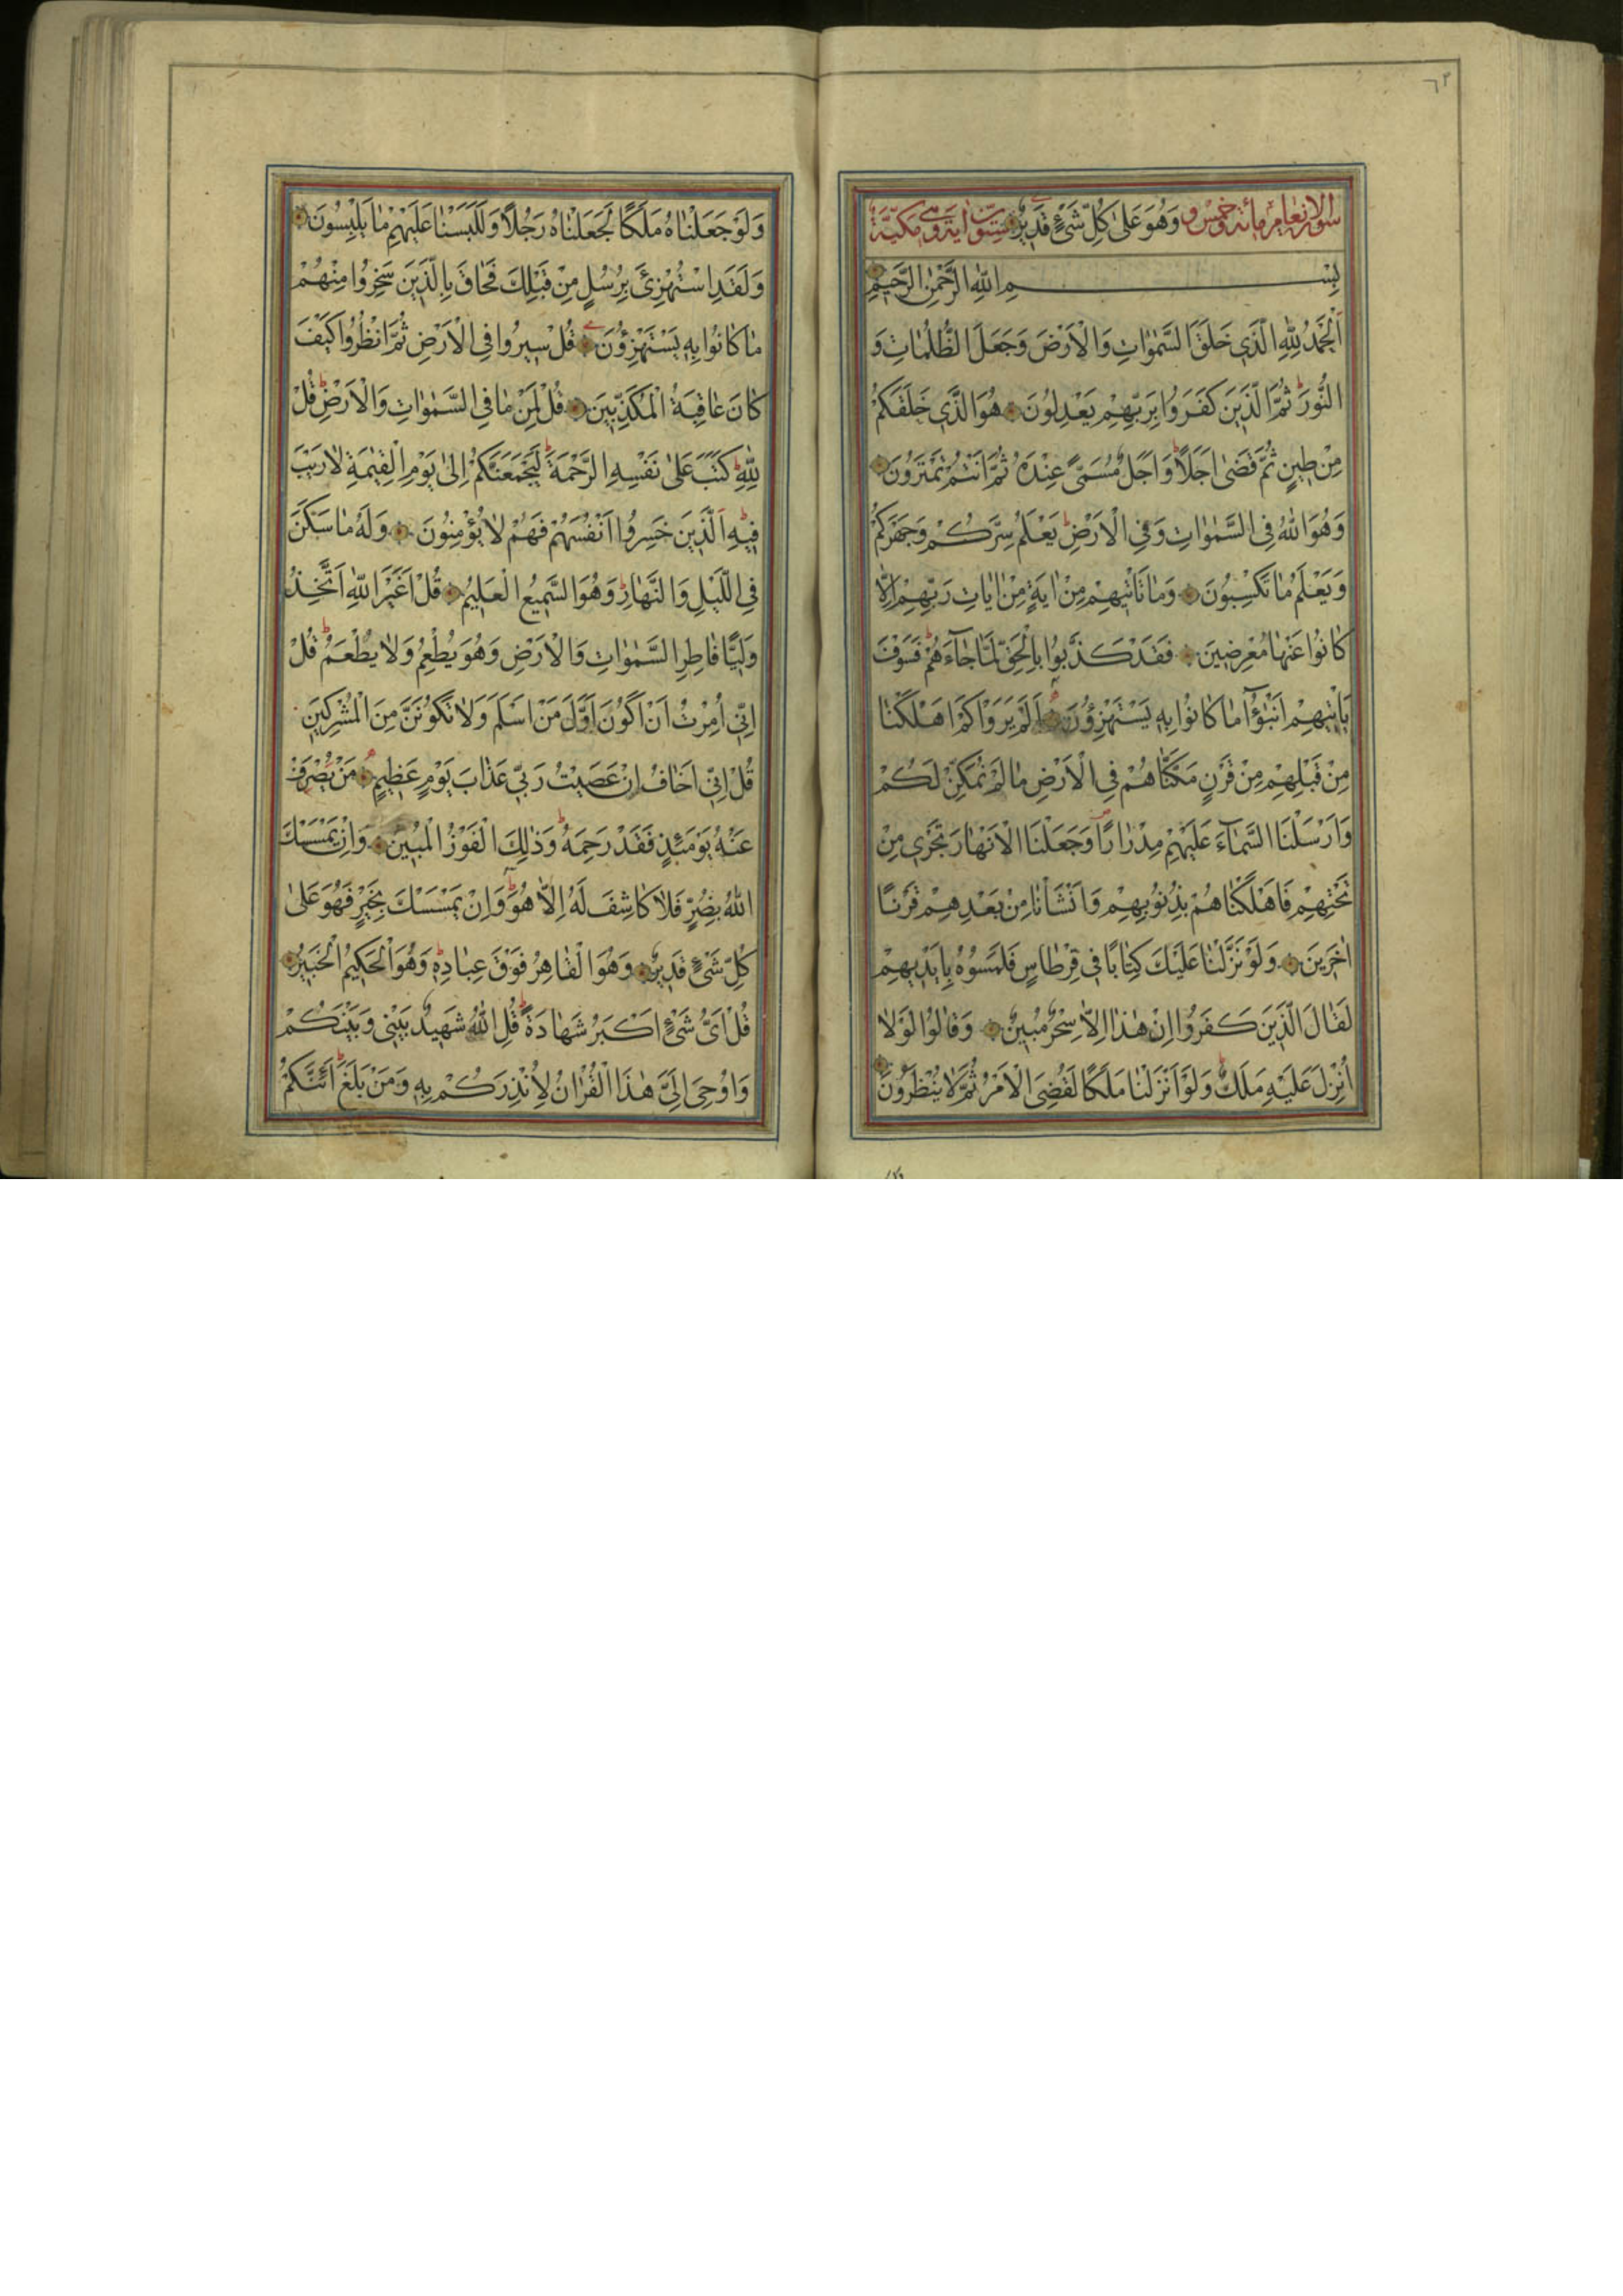 ٦٣
سورة الانعام مائة وخمس و وَهُوَ عَلٰى كُلِّ شَىْءٍ قَدِيرٌ ستون اية وهى مكيّة
بِسْمِ اللّٰهِ الرَّحْمٰنِ الرَّحِيمِ
اَلْحَمْدُ لِلّٰهِ الَّذِي خَلَقَ السَّمٰوَاتِ وَالْاَرْضَ وَجَعَلَ الظُّلُمَاتِ وَ
النُّورَ ثُمَّ الَّذِينَ كَفَرُوا بِرَبِّهِمْ يَعْدِلُونَ هُوَ الَّذِي خَلَقَكُمْ
مِنْ طِينٍ ثُمَّ قَضٰى اَجَلًا وَاَجَلٌ مُسَمًّى عِنْدَهُ ثُمَّ اَنْتُمْ تَمْتَرُونَ
وَهُوَ اللّٰهُ فِى السَّمٰوَاتِ وَفِى الْاَرْضِ يَعْلَمُ سِرَّكُمْ وَجَهْرَكُمْ
وَيَعْلَمُ مَا تَكْسِبُونَ وَمَا تَأْتِيهِمْ مِنْ اٰيَةٍ مِنْ اٰيَاتِ رَبِّهِمْ اِلَّا
كَانُوا عَنْهَا مُعْرِضِينَ فَقَدْ كَذَّبُوا بِالْحَقِّ لَمَّا جَاءَهُمْ فَسَوْفَ
يَأْتِيهِمْ اَنْبٰؤُا مَا كَانُوا بِهِ يَسْتَهْزِؤُنَ اَلَمْ يَرَوْا كَمْ اَهْلَكْنَا
مِنْ قَبْلِهِمْ مِنْ قَرْنٍ مَكَّنَّاهُمْ فِى الْاَرْضِ مَا لَمْ نُمَكِّنْ لَكُمْ
وَاَرْسَلْنَا السَّمَاءَ عَلَيْهِمْ مِدْرَارًا وَجَعَلْنَا الْاَنْهَارَ تَجْرِي مِنْ
تَحْتِهِمْ فَاَهْلَكْنَاهُمْ بِذُنُوبِهِمْ وَاَنْشَأْنَا مِنْ بَعْدِهِمْ قَرْنًا
اٰخَرِينَ وَلَوْ نَزَّلْنَا عَلَيْكَ كِتَابًا فِى قِرْطَاسٍ فَلَمَسُوهُ بِاَيْدِيهِمْ
لَقَالَ الَّذِينَ كَفَرُوا اِنْ هٰذَا اِلَّا سِحْرٌ مُبِينٌ وَقَالُوا لَوْلَا
اُنْزِلَ عَلَيْهِ مَلَكٌ وَلَوْ اَنْزَلْنَا مَلَكًا لَقُضِىَ الْاَمْرُ ثُمَّ لَا يُنْظَرُونَ
وَلَوْ جَعَلْنَاهُ مَلَكًا لَجَعَلْنَاهُ رَجُلًا وَلَلَبَسْنَا عَلَيْهِمْ مَا يَلْبِسُونَ
وَلَقَدِ اسْتُهْزِئَ بِرُسُلٍ مِنْ قَبْلِكَ فَحَاقَ بِالَّذِينَ سَخِرُوا مِنْهُمْ
مَا كَانُوا بِهِ يَسْتَهْزِؤُنَ قُلْ سِيرُوا فِى الْاَرْضِ ثُمَّ انْظُرُوا كَيْفَ
كَانَ عَاقِبَةُ الْمُكَذِّبِينَ قُلْ لِمَنْ مَا فِى السَّمٰوَاتِ وَالْاَرْضِ قُلْ
لِلّٰهِ كَتَبَ عَلٰى نَفْسِهِ الرَّحْمَةَ لَيَجْمَعَنَّكُمْ اِلٰى يَوْمِ الْقِيٰمَةِ لَا رَيْبَ
فِيهِ اَلَّذِينَ خَسِرُوا اَنْفُسَهُمْ فَهُمْ لَا يُؤْمِنُونَ وَلَهُ مَا سَكَنَ
فِى اللَّيْلِ وَالنَّهَارِ وَهُوَ السَّمِيعُ الْعَلِيمُ قُلْ اَغَيْرَ اللّٰهِ اَتَّخِذُ
وَلِيًّا فَاطِرِ السَّمٰوَاتِ وَالْاَرْضِ وَهُوَ يُطْعِمُ وَلَا يُطْعَمُ قُلْ
اِنِّى اُمِرْتُ اَنْ اَكُونَ اَوَّلَ مَنْ اَسْلَمَ وَلَا تَكُونَنَّ مِنَ الْمُشْرِكِينَ
قُلْ اِنِّى اَخَافُ اِنْ عَصَيْتُ رَبِّى عَذَابَ يَوْمٍ عَظِيمٍ مَنْ يُصْرَفْ
عَنْهُ يَوْمَئِذٍ فَقَدْ رَحِمَهُ وَذٰلِكَ الْفَوْزُ الْمُبِينُ وَاِنْ يَمْسَسْكَ
اللّٰهُ بِضُرٍّ فَلَا كَاشِفَ لَهُ اِلَّا هُوَ وَاِنْ يَمْسَسْكَ بِخَيْرٍ فَهُوَ عَلٰى
كُلِّ شَىْءٍ قَدِيرٌ وَهُوَ الْقَاهِرُ فَوْقَ عِبَادِهِ وَهُوَ الْحَكِيمُ الْخَبِيرُ
قُلْ اَىُّ شَىْءٍ اَكْبَرُ شَهَادَةً قُلِ اللّٰهُ شَهِيدٌ بَيْنِى وَبَيْنَكُمْ
وَاُوحِىَ اِلَىَّ هٰذَا الْقُرْاٰنُ لِاُنْذِرَكُمْ بِهِ وَمَنْ بَلَغَ اَئِنَّكُمْ